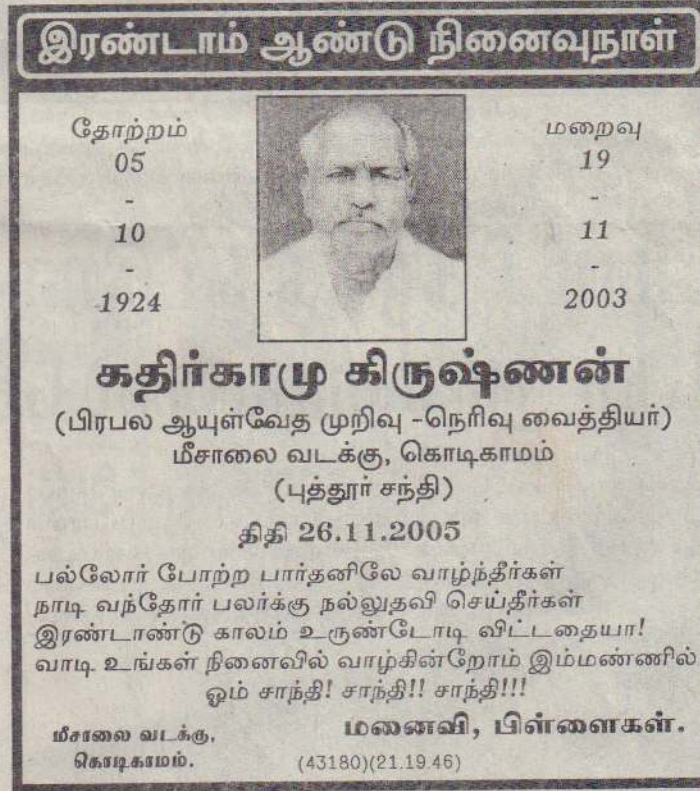 இரண்டாம் ஆண்டு நினைவுநாள்
தோற்றம்
05
-
10
-
1924
மறைவு
19
-
11
-
2003
கதிர்காமு கிருஷ்ணன்
(பிரபல ஆயுள்வேத முறிவு -நெரிவு வைத்தியர்)
மீசாலை வடக்கு, கொடிகாமம்
(புத்தூர் சந்தி)
திதி 26.11.2005
பல்லோர் போற்ற பார்தனிலே வாழ்ந்தீர்கள்
நாடி வந்தோர் பலர்க்கு நல்லுதவி செய்தீர்கள்
இரண்டாண்டு காலம் உருண்டோடி விட்டதையா!
வாடி உங்கள் நினைவில் வாழ்கின்றோம் இம்மண்ணில்
ஓம் சாந்தி! சாந்தி!! சாந்தி!!!
மனைவி, பிள்ளைகள்.
மீசாலை வடக்கு,
கொடிகாமம்.
(43180)(21.19.46)